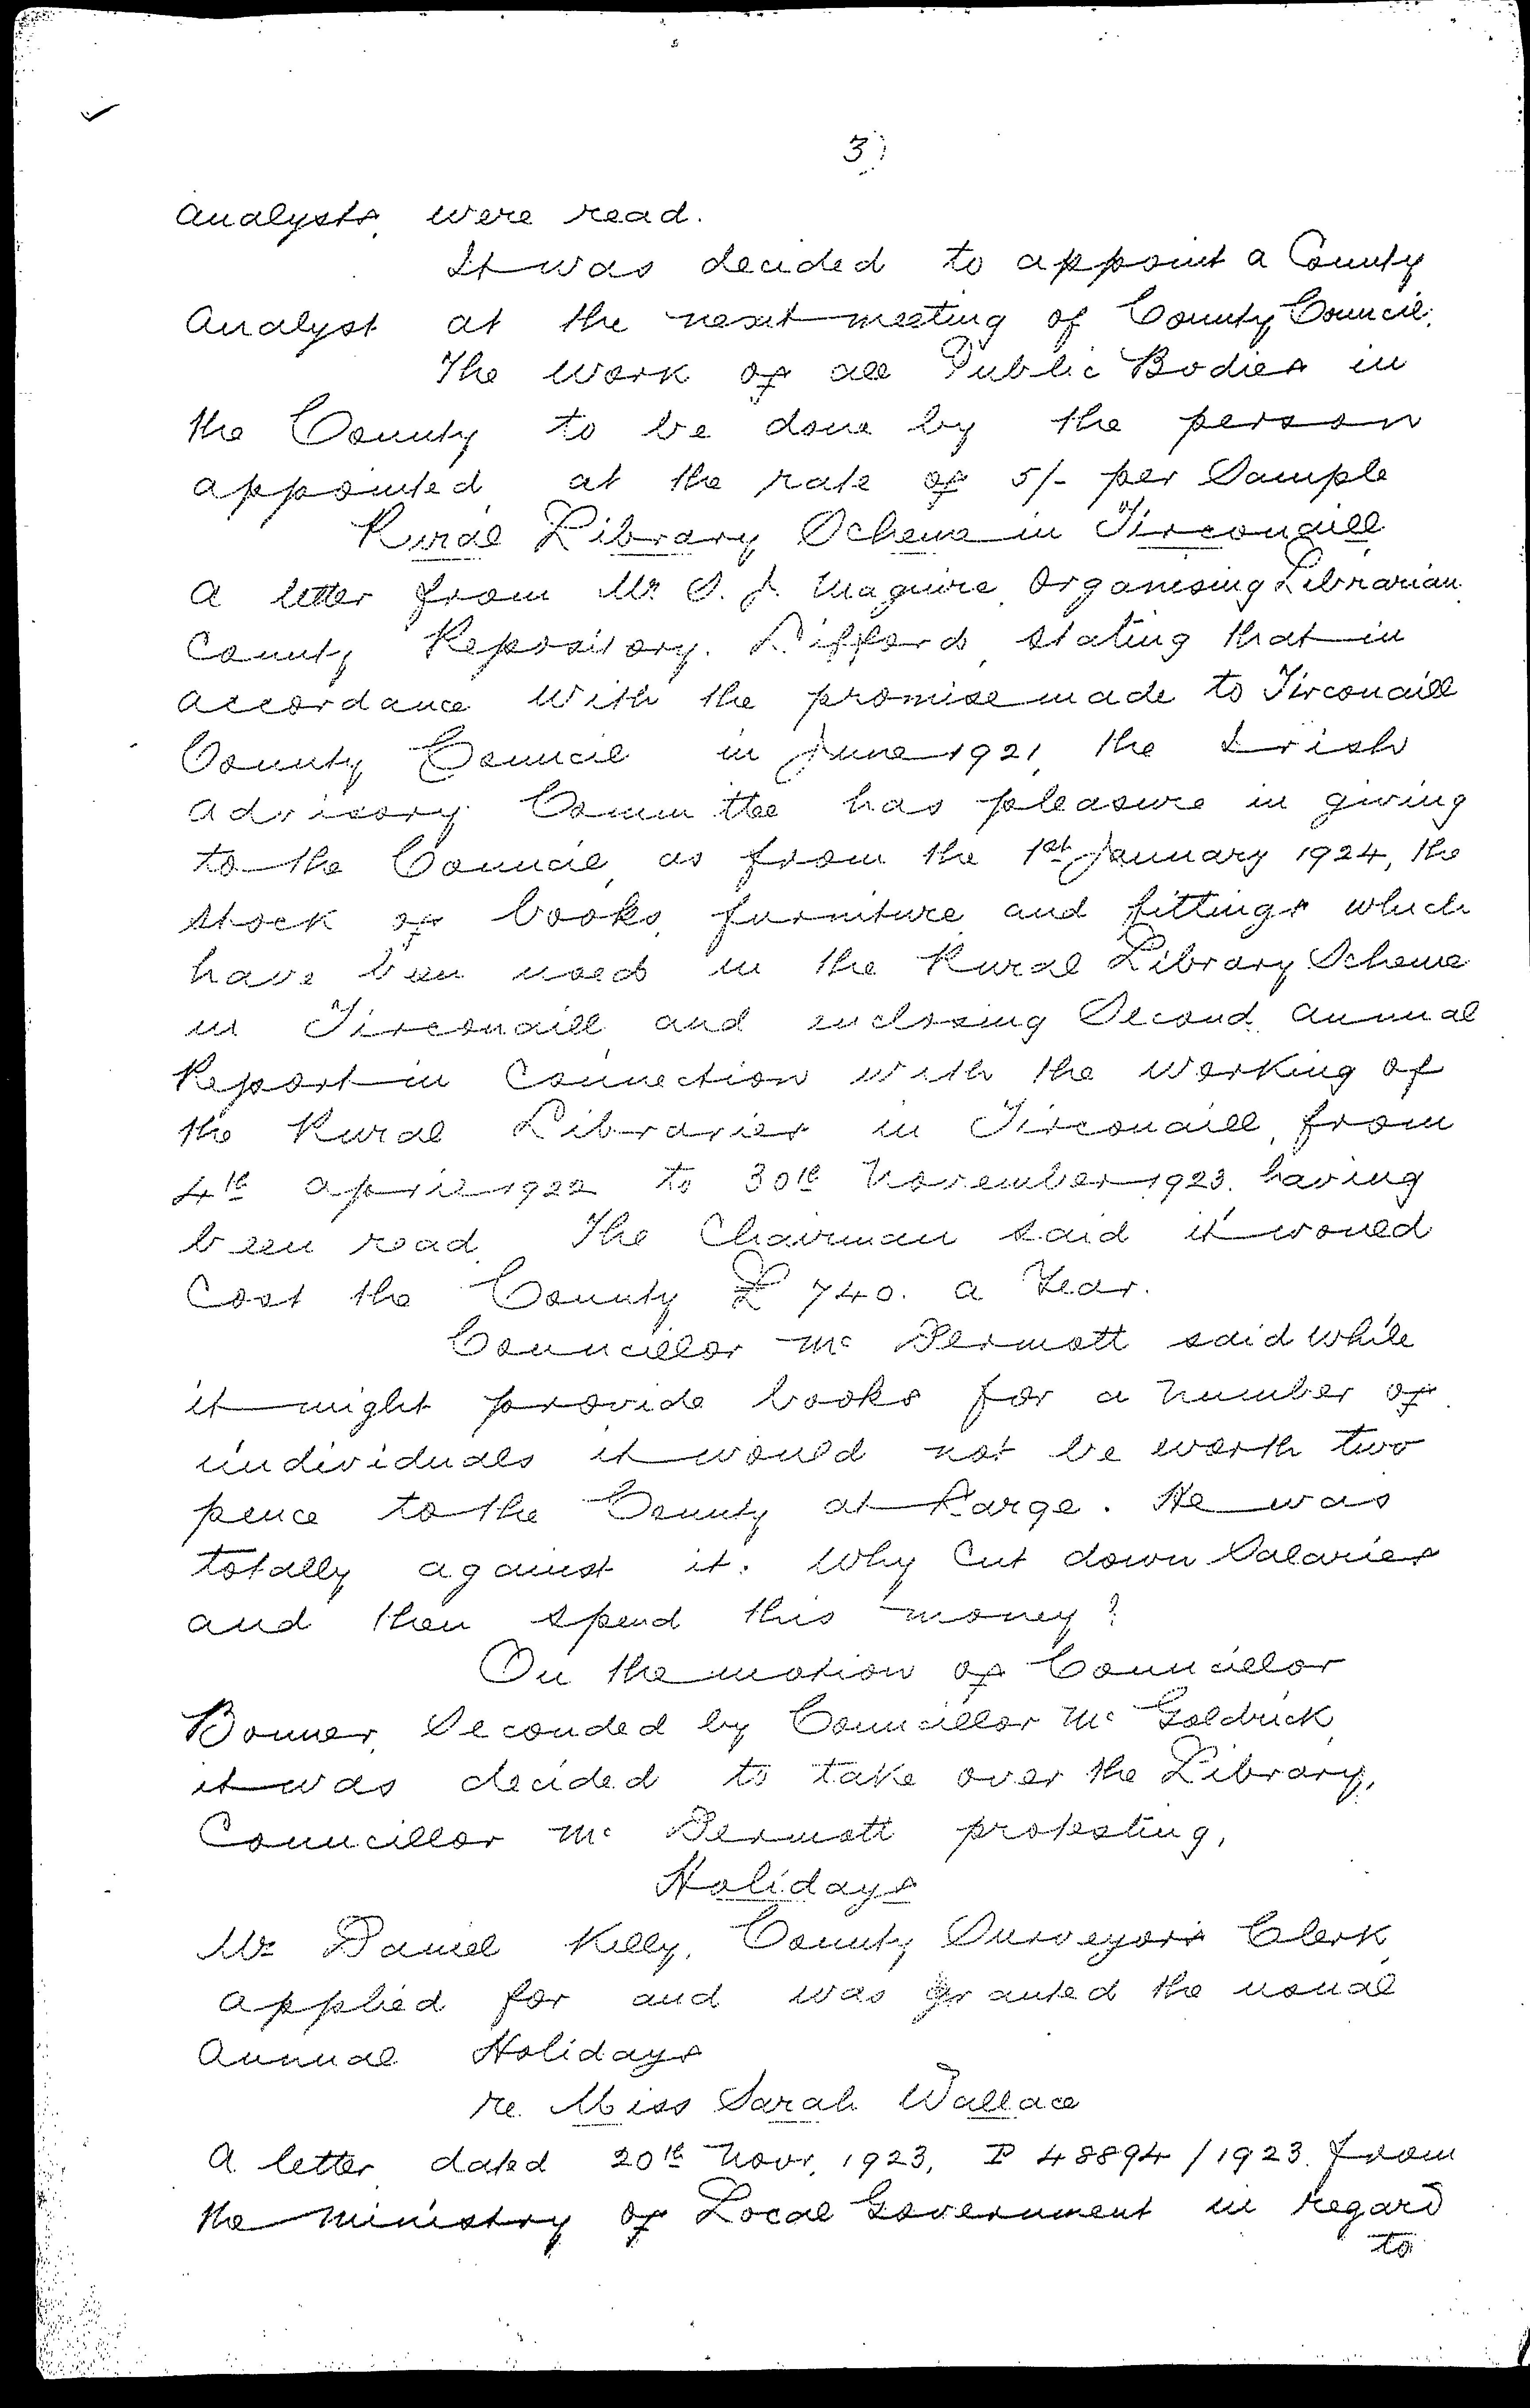 3)
analysts, were read.
It was decided to appoint a County
Analyst at the next meeting of County Council.
The work of all Public Bodies in
the County to be done by the person
appointed at the rate of 5/- per Sample
Rural Library Scheme in Tirconaill
A letter from Mr. S. J. Maguire, Organising Librarian,
County Repository. Lifford, stating that in
accordance with the promise made to Tirconaill
County Council in June 1921, the Irish
Advisory Committee has pleasure in giving
to the Council, as from the 1st January 1924, the
stock of books, furniture and fittings which
have been used in the Rural Library Scheme
in Tirconaill and enclosing Second Annual
Report in connection with the working of
the Rural Libraries in Tirconaill, from
4th April 1922 to 30th November 1923, having
been read, The Chairman said it would
cost the County £740. a Year.
Councillor Mc Dermott said while
it might provide books for a number of
individuals it would not be worth two
pence to the County at Large. He was
totally against it. Why cut down Salaries
and then spend this money?
On the motion of Councillor
Bonner, Seconded by Councillor Mc Goldrick,
it was decided to take over the Library,
Councillor Mc Dermott protesting.
Holidays
Mr Daniel Kelly, County Surveyor's Clerk,
applied for and was granted the usual
Annual Holidays
re. Miss Sarah Wallace
A letter dated 20th Novr. 1923, P 48894/1923. from
the Ministry of Local Government in regard
to